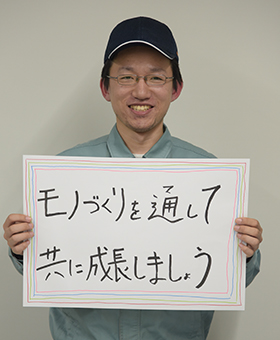 モノづくりを通して
共に成長しましょう